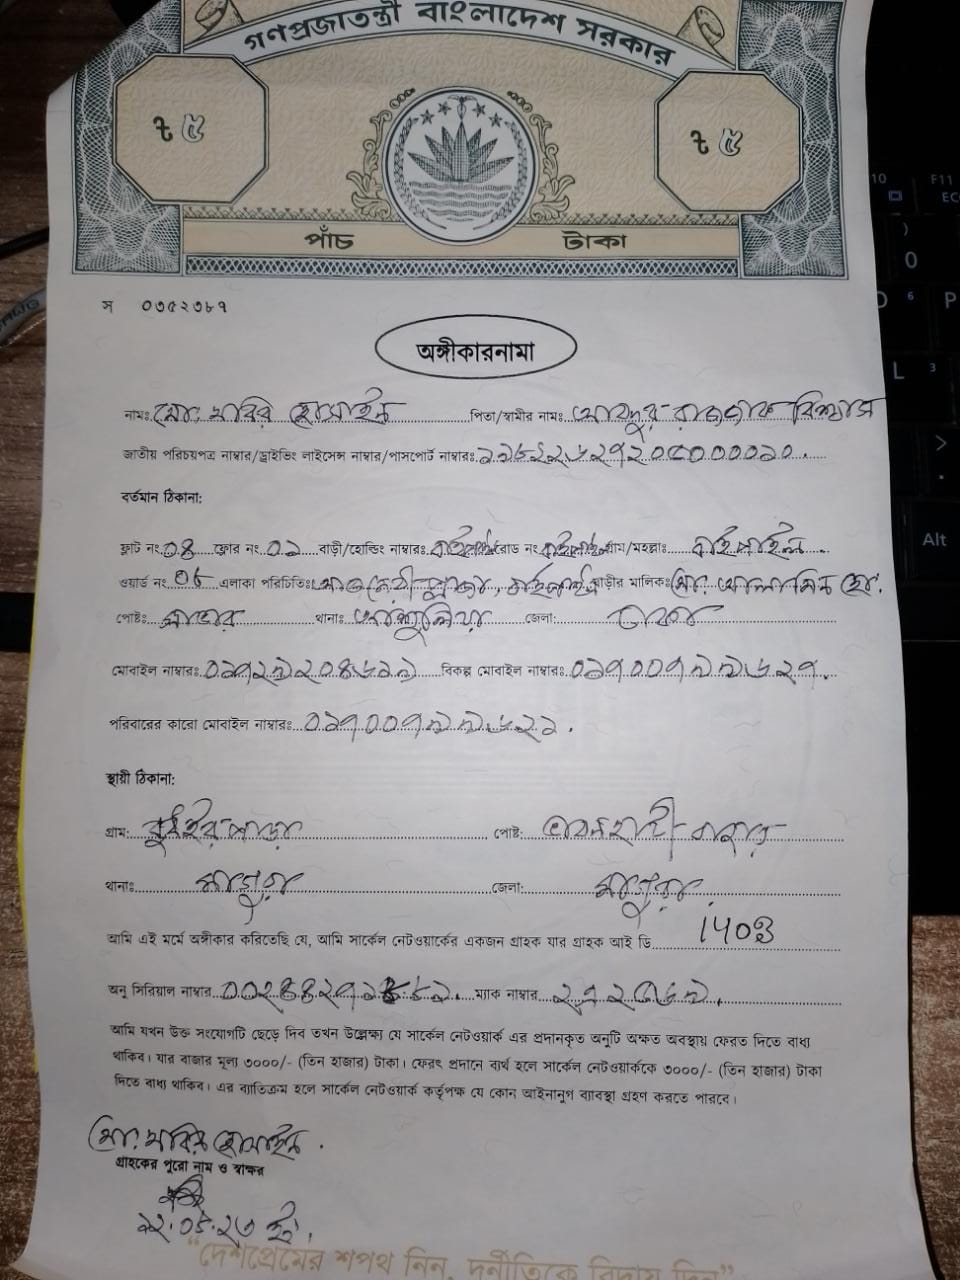 গণপ্রজাতন্ত্রী বাংলাদেশ সরকার
৳ ৫ ৳ ৫
পাঁচ টাকা
স ০৩৫২৩৮৭
অঙ্গীকারনামা
নামঃ মোঃ সাবির হোসাইন পিতা/স্বামীর নামঃ আবদুর রাজ্জাক বিশ্বাস
জাতীয় পরিচয়পত্র নাম্বার/ড্রাইভিং লাইসেন্স নাম্বার/পাসপোর্ট নাম্বারঃ
বর্তমান ঠিকানা:
ফ্লাট নং. ০৪ ফ্লোর নং. ০১ বাড়ী/হোল্ডিং নাম্বারঃ রোড নং গ্রাম/মহল্লাঃ বাইপাইল
ওয়ার্ড নং এলাকা পরিচিতিঃ বাড়ীর মালিকঃ মো:
পোষ্টঃ সাভার থানাঃ আশুলিয়া জেলা: ঢাকা
মোবাইল নাম্বারঃ ০১৭২৯২০৪৬১৯ বিকল্প মোবাইল নাম্বারঃ ০১৭০০৭৯৯৬২৭
পরিবারের কারো মোবাইল নাম্বারঃ ০১৭০০৭৯৯৬২১
স্থায়ী ঠিকানা:
গ্রাম: পাড়া পোষ্ট: বাজার
থানাঃ মাগুরা জেলা: মাগুরা
আমি এই মর্মে অঙ্গীকার করিতেছি যে, আমি সার্কেল নেটওয়ার্কের একজন গ্রাহক যার গ্রাহক আই ডি 1403
অনু সিরিয়াল নাম্বার ম্যাক নাম্বার
আমি যখন উক্ত সংযোগটি ছেড়ে দিব তখন উল্লেক্ষ্য যে সার্কেল নেটওয়ার্ক এর প্রদানকৃত অনুটি অক্ষত অবস্থায় ফেরত দিতে বাধ্য
থাকিব। যার বাজার মূল্য ৩০০০/- (তিন হাজার) টাকা। ফেরৎ প্রদানে ব্যর্থ হলে সার্কেল নেটওয়ার্ককে ৩০০০/- (তিন হাজার) টাকা
দিতে বাধ্য থাকিব। এর ব্যাতিক্রম হলে সার্কেল নেটওয়ার্ক কর্তৃপক্ষ যে কোন আইনানুগ ব্যাবস্থা গ্রহণ করতে পারবে।
মো: সাবির হোসাইন
গ্রাহকের পুরো নাম ও স্বাক্ষর
১২.০৮.২৩ ইং
“দেশপ্রেমের শপথ নিন, দুর্নীতিকে বিদায় দিন”